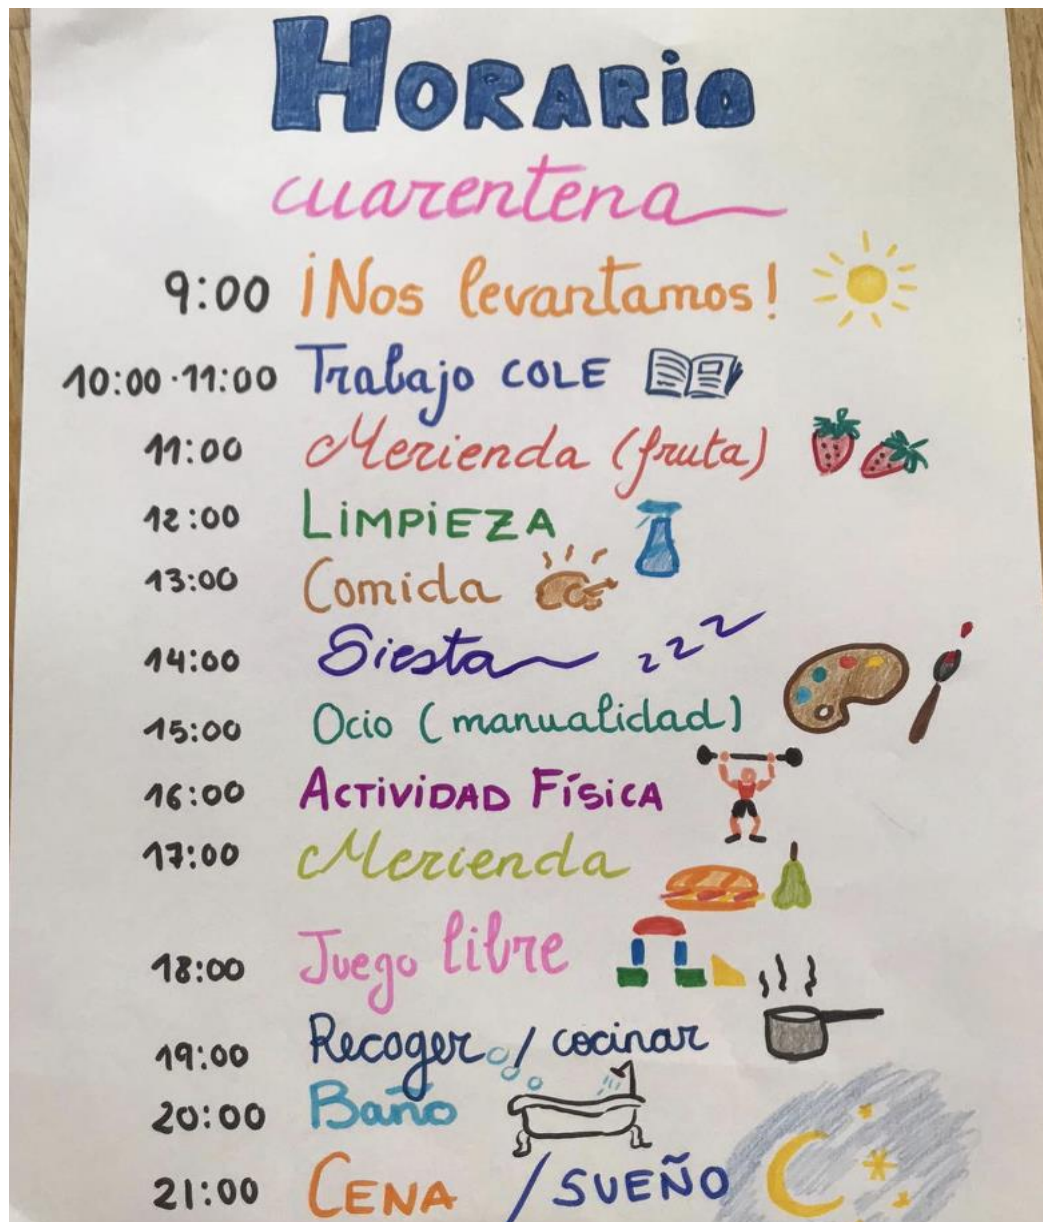 HORARiO
cuarentena
9:00 ¡Nos levantamos!
10:00-11:00 Trabajo COLE
11:00 Merienda (fruta)
12:00 LiMPiEZA
13:00 Comida
14:00 Siesta z z z
15:00 Ocio (manualidad)
16:00 ACTiViDAD FíSiCA
17:00 Merienda
18:00 Juego libre
19:00 Recoger / cocinar
20:00 Baño
21:00 CENA / SUEÑO